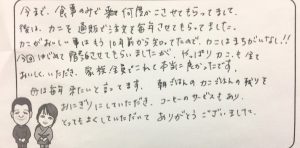 今まで、食事のみで 何度かこさせてもらってまして、
後は、カニを通販で注文を毎年させてもらってました。
カニがおいしい事はもう10年前から知ってたので、カニはまちがいなし!!
今回はじめて宿泊させてもらいましたが、やっぱりカニも全て
おいしくいただき、家族全員でこれて本当に良かったです。
母は毎年来たいと言ってます。朝ごはんのカニごはんの残りを
おにぎりにしていただき、コーヒーのサービスもあり、
とってもよくしていただいて ありがとうございました。